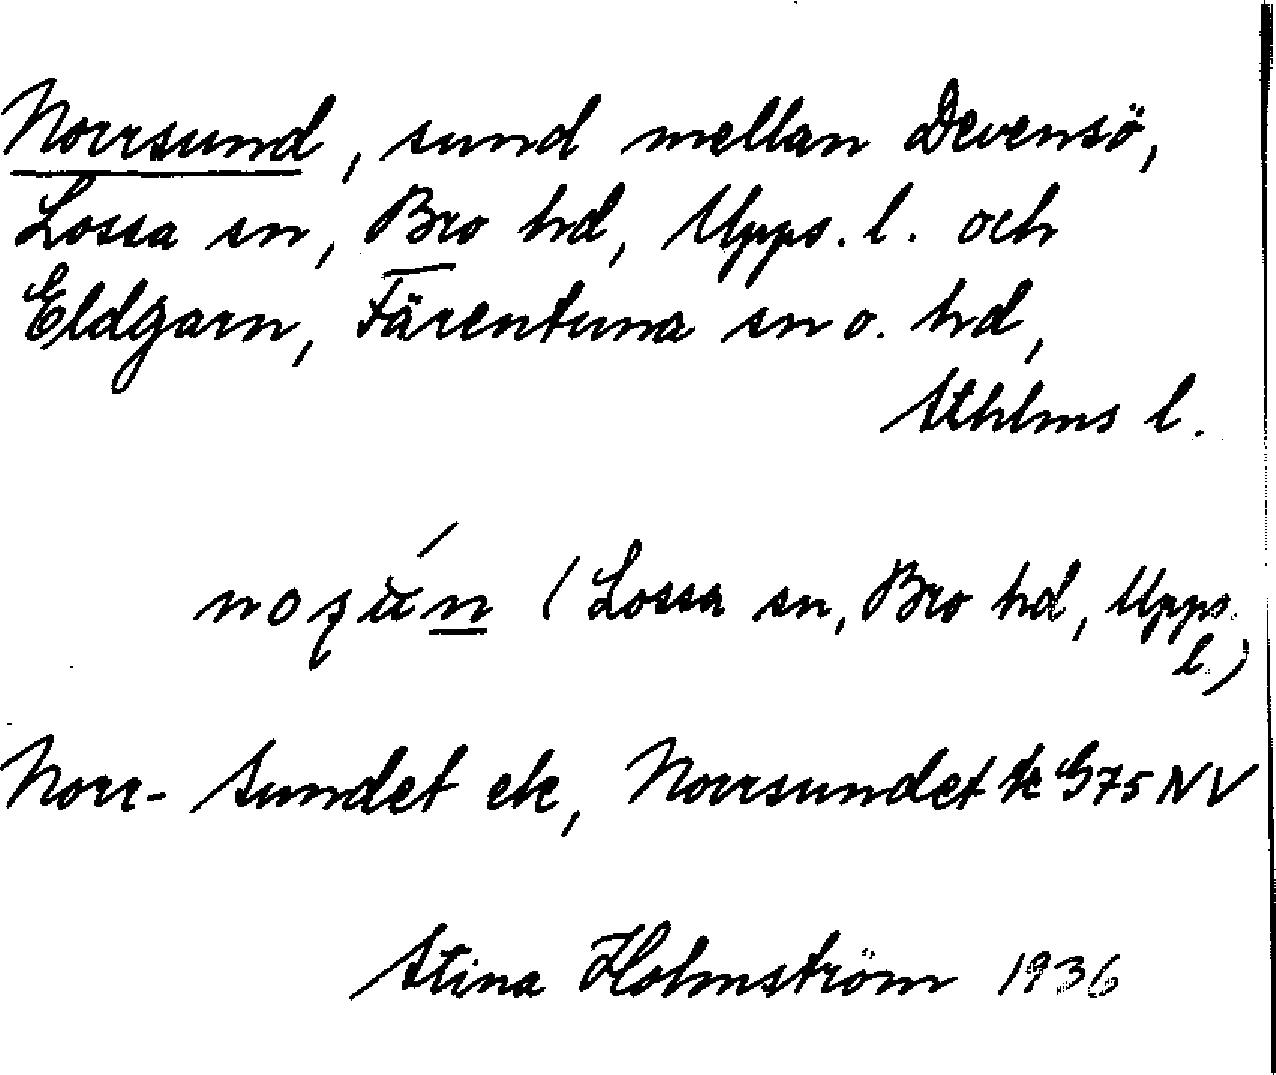 Norrsund, sund mellan Devensö,
Lossa sn, Bro hd, Upps. l. och
Eldgarn, Färentuna sn o. hd,
Sthlms l.
(Lossa sn, Bro hd, Upps.
l.)
Norr-Sundet ek, Norrsundet tk G75 NV
Stina Holmström 1936